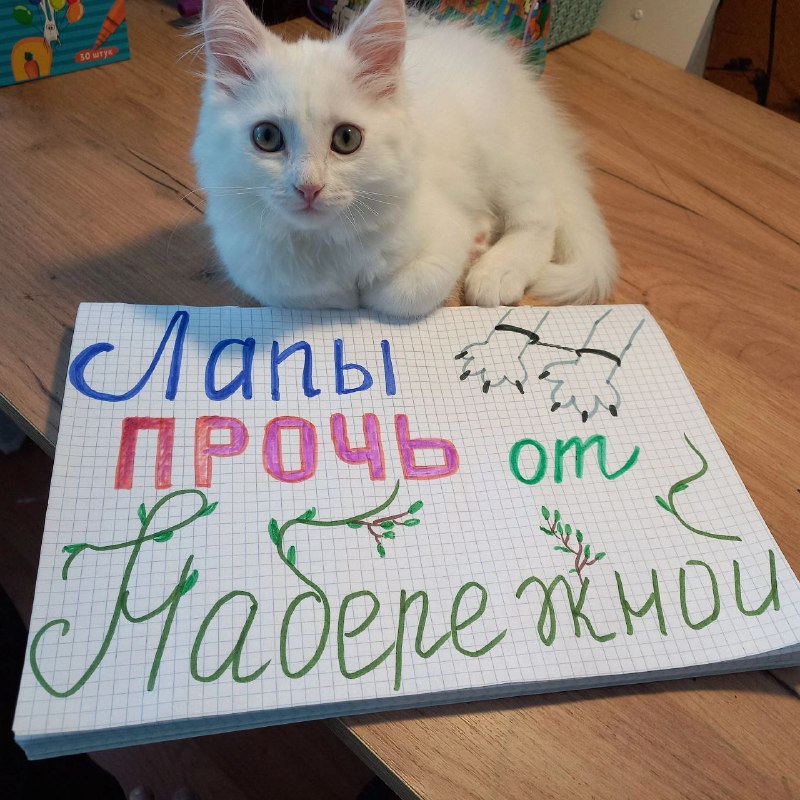 50 штук
Лапы
ПРОЧЬ от
Набережной